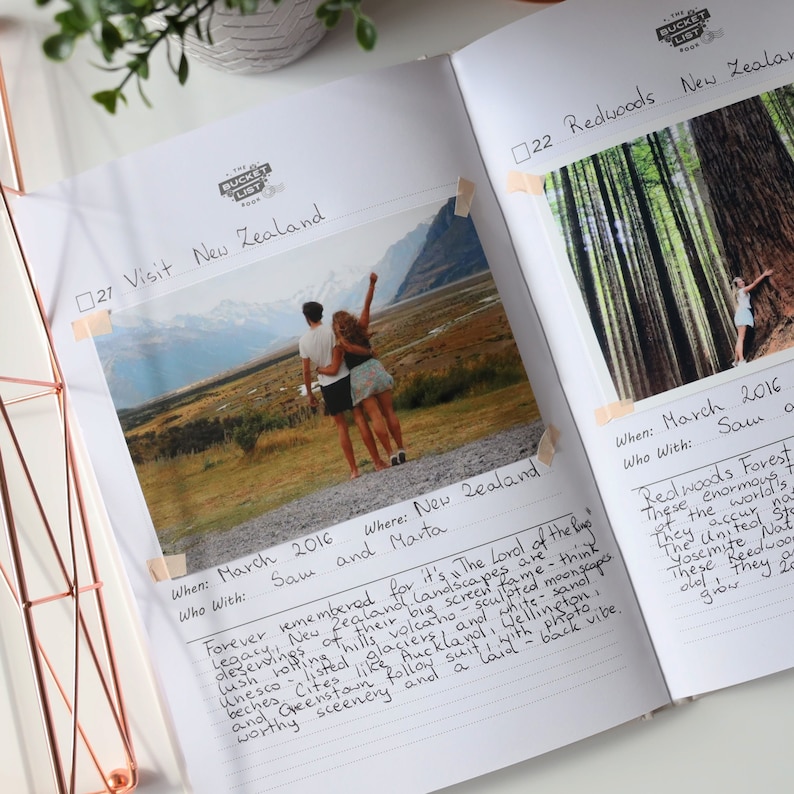 THE
BUCKET
LIST
BOOK
21 Visit New Zealand
When: March 2016 Where: New Zealand
Who With: Saw and Marta
Forever remembered for it's "The Lord of the Rings"
legacy, New Zealand landscapes are
deservings of their big screen fame - think
lush rolling hills, volcano-sculpted moonscapes
Unesco-listed glaciers and white-sand
beches. Cites like Auckland, Wellington,
and Queenstown follow suit, with photo
worthy sceenery and a laid-back vibe.
THE
BUCKET
LIST
BOOK
22 Redwoods New Zealan
When: March 2016
Who With: Saw a
Redwoods Forest
These enormous t
of the world's
They occur nat
The United Sta
Yosemite Nati
These Reedwood
old they ar
grow 20